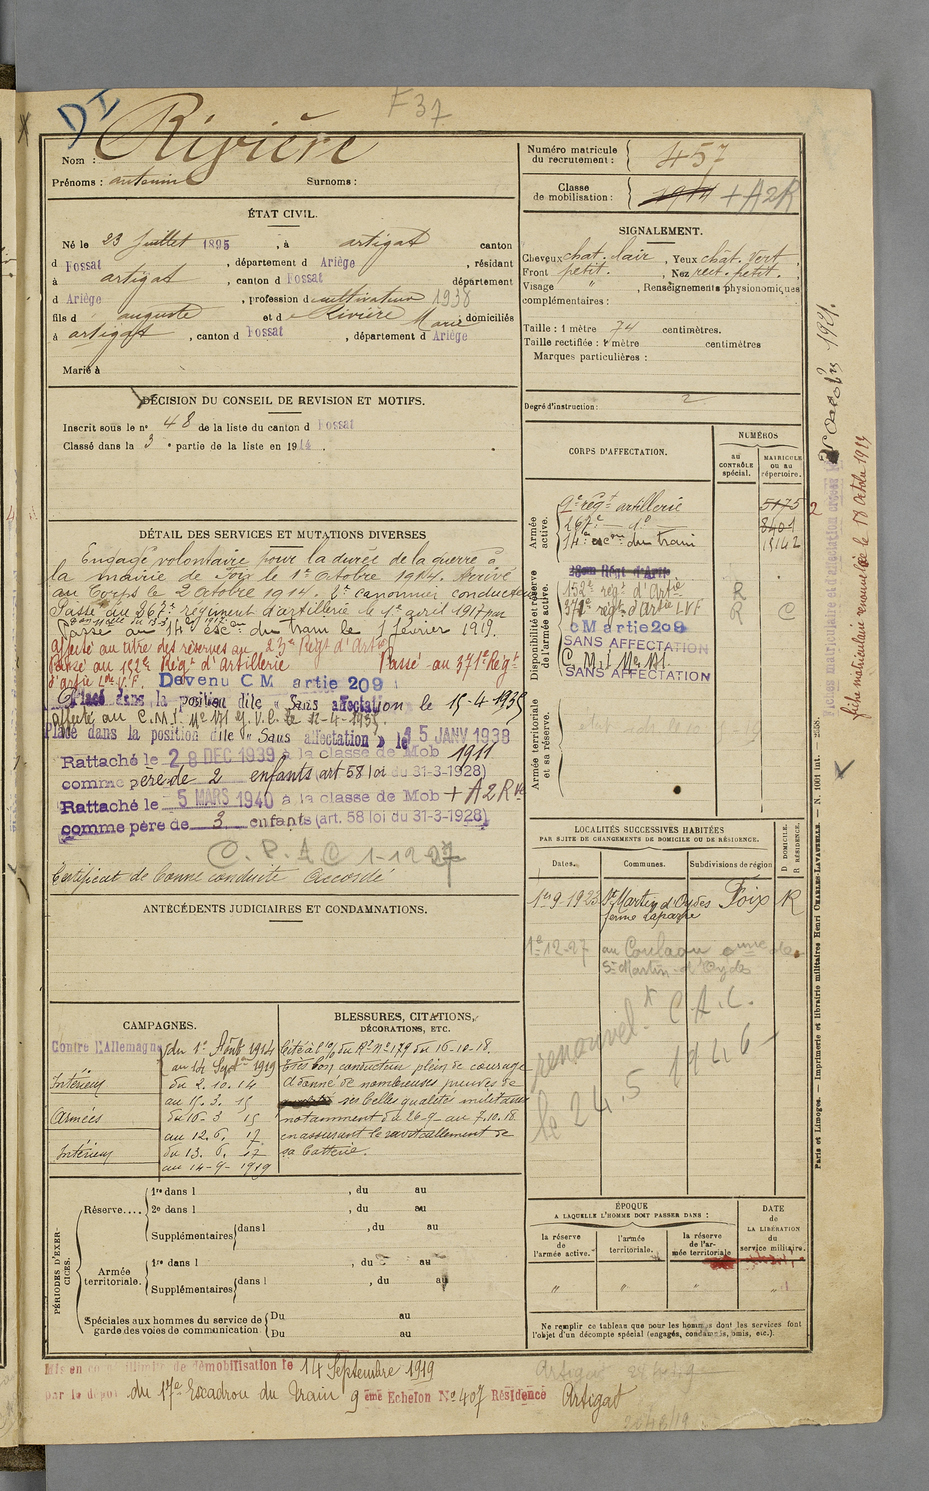 DI
F37
Nom : Rivière
Prénoms : antonin Surnoms :
ÉTAT CIVIL.
Né le 23 Juillet 1895, à artigat canton
d Fossat, département d Ariège, résidant
à artigat, canton d Fossat département
d Ariège, profession d cultivateur 1938
fils d auguste et d e Rivière Marie domiciliés
à artigat, canton d Fossat, département d Ariège
Marié à
DÉCISION DU CONSEIL DE REVISION ET MOTIFS.
Inscrit sous le no 48 de la liste du canton d Fossat
Classé dans la 3 e partie de la liste en 1914.
DÉTAIL DES SERVICES ET MUTATIONS DIVERSES
Engagé volontaire pour la durée de la guerre à
la mairie de Foix le 1er Octobre 1914. Arrivé
au Corps le 2 Octobre 1914. 2e canonnier conducteur
Passé au 267e régiment d'artillerie le 1er avril 1917
Passé au 14e escon du train le 1 février 1919.
affecté au titre des réserves au 23e Régt d'Artie
Passé au 152e Régt d'Artillerie Passé au 371e Régt
d'Artie Lde V.F. Devenu C M artie 209
Placé dans la position dite « Sans affectation le 15-4-1935
affecté au C.M.I. No 171 le 12-4-1935
Placé dans la position dite « Sans affectation » le 15 JANV 1938
Rattaché le 28 DEC 1939 à la classe de Mob 1911
comme père de 2 enfants (art 58 loi du 31-3-1928)
Rattaché le 5 MARS 1940 à la classe de Mob + A2R
comme père de 3 enfants (art. 58 loi du 31-3-1928)
C.P.A.C 1-12 27
Certificat de bonne conduite accordé
ANTÉCÉDENTS JUDICIAIRES ET CONDAMNATIONS.
CAMPAGNES.
Contre l'Allemagne du 1er Août 1914
au 14 Septre 1919
Intérieur du 2.10.14
au 15.3.15
Armées du 16-3 15
au 12.6.17
Intérieur du 13.6.17
au 14-9-1919
BLESSURES, CITATIONS,
DÉCORATIONS, ETC.
Cité à l'O/ du Rt No 179 du 16-10-18.
Très bon conducteur plein de courage
a donné de nombreuses preuves de
ses belles qualités militaires
notamment du 26-9 au 7.10.18
en assurant le ravitaillement de
sa batterie.
PÉRIODES D'EXERCICES.
Réserve.... 1re dans l , du au
2e dans l , du au
Supplémentaires dans l , du au
Armée territoriale. 1re dans l , du au
Supplémentaires dans l , du au
Spéciales aux hommes du service de garde des voies de communication Du au
Du au
Mis en démobilisation le 14 Septembre 1919
par le dépôt du 17e Escadron du Train 9 ème Echelon No 407 Résidence Artigat
Numéro matricule du recrutement : 457
Classe de mobilisation : 1914 + A2R
SIGNALEMENT.
Cheveux chat. clair, Yeux chât. vert
Front petit., Nez rect. petit.
Visage ", Renseignements physionomiques
complémentaires :
Taille : 1 mètre 74 centimètres.
Taille rectifiée : 1 mètre centimètres
Marques particulières :
Degré d'instruction : 2
CORPS D'AFFECTATION.
NUMÉROS
au CONTRÔLE spécial.
MATRICULE ou au répertoire.
Armée active.
9e régt artillerie 5175
267e do 8401
14e escon du train 15142
Disponibilité et réserve de l'armée active.
152e régt d'Artie R
371e régt d'Artie LVF R C
C M artie 209
SANS AFFECTATION
SANS AFFECTATION
Armée territoriale et sa réserve.
LOCALITÉS SUCCESSIVES HABITÉES
PAR SUITE DE CHANGEMENTS DE DOMICILE OU DE RÉSIDENCE.
Dates. Communes. Subdivisions de région
D DOMICILE. R RÉSIDENCE.
1er 9-1923 St Martin d'Oydes Foix R
ferme Lapagre
1er 12-27 au Coulaou
St Martin-d'Oydes
renouvelt C.A.C.
le 24.5 1946
ÉPOQUE
A LAQUELLE L'HOMME DOIT PASSER DANS :
la réserve de l'armée active.
l'armée territoriale.
la réserve de l'armée territoriale
DATE de LA LIBÉRATION du service militaire.
" " " "
Ne remplir ce tableau que pour les hommes dont les services font
l'objet d'un décompte spécial (engagés, condamnés, omis, etc.).
Artigat
fiche matriculaire renouvelée le 18 Octobre 1923
Paris et Limoges. — Imprimerie et librairie militaires Henri CHARLES-LAVAUZELLE. — N. 1001 int. — 2558.